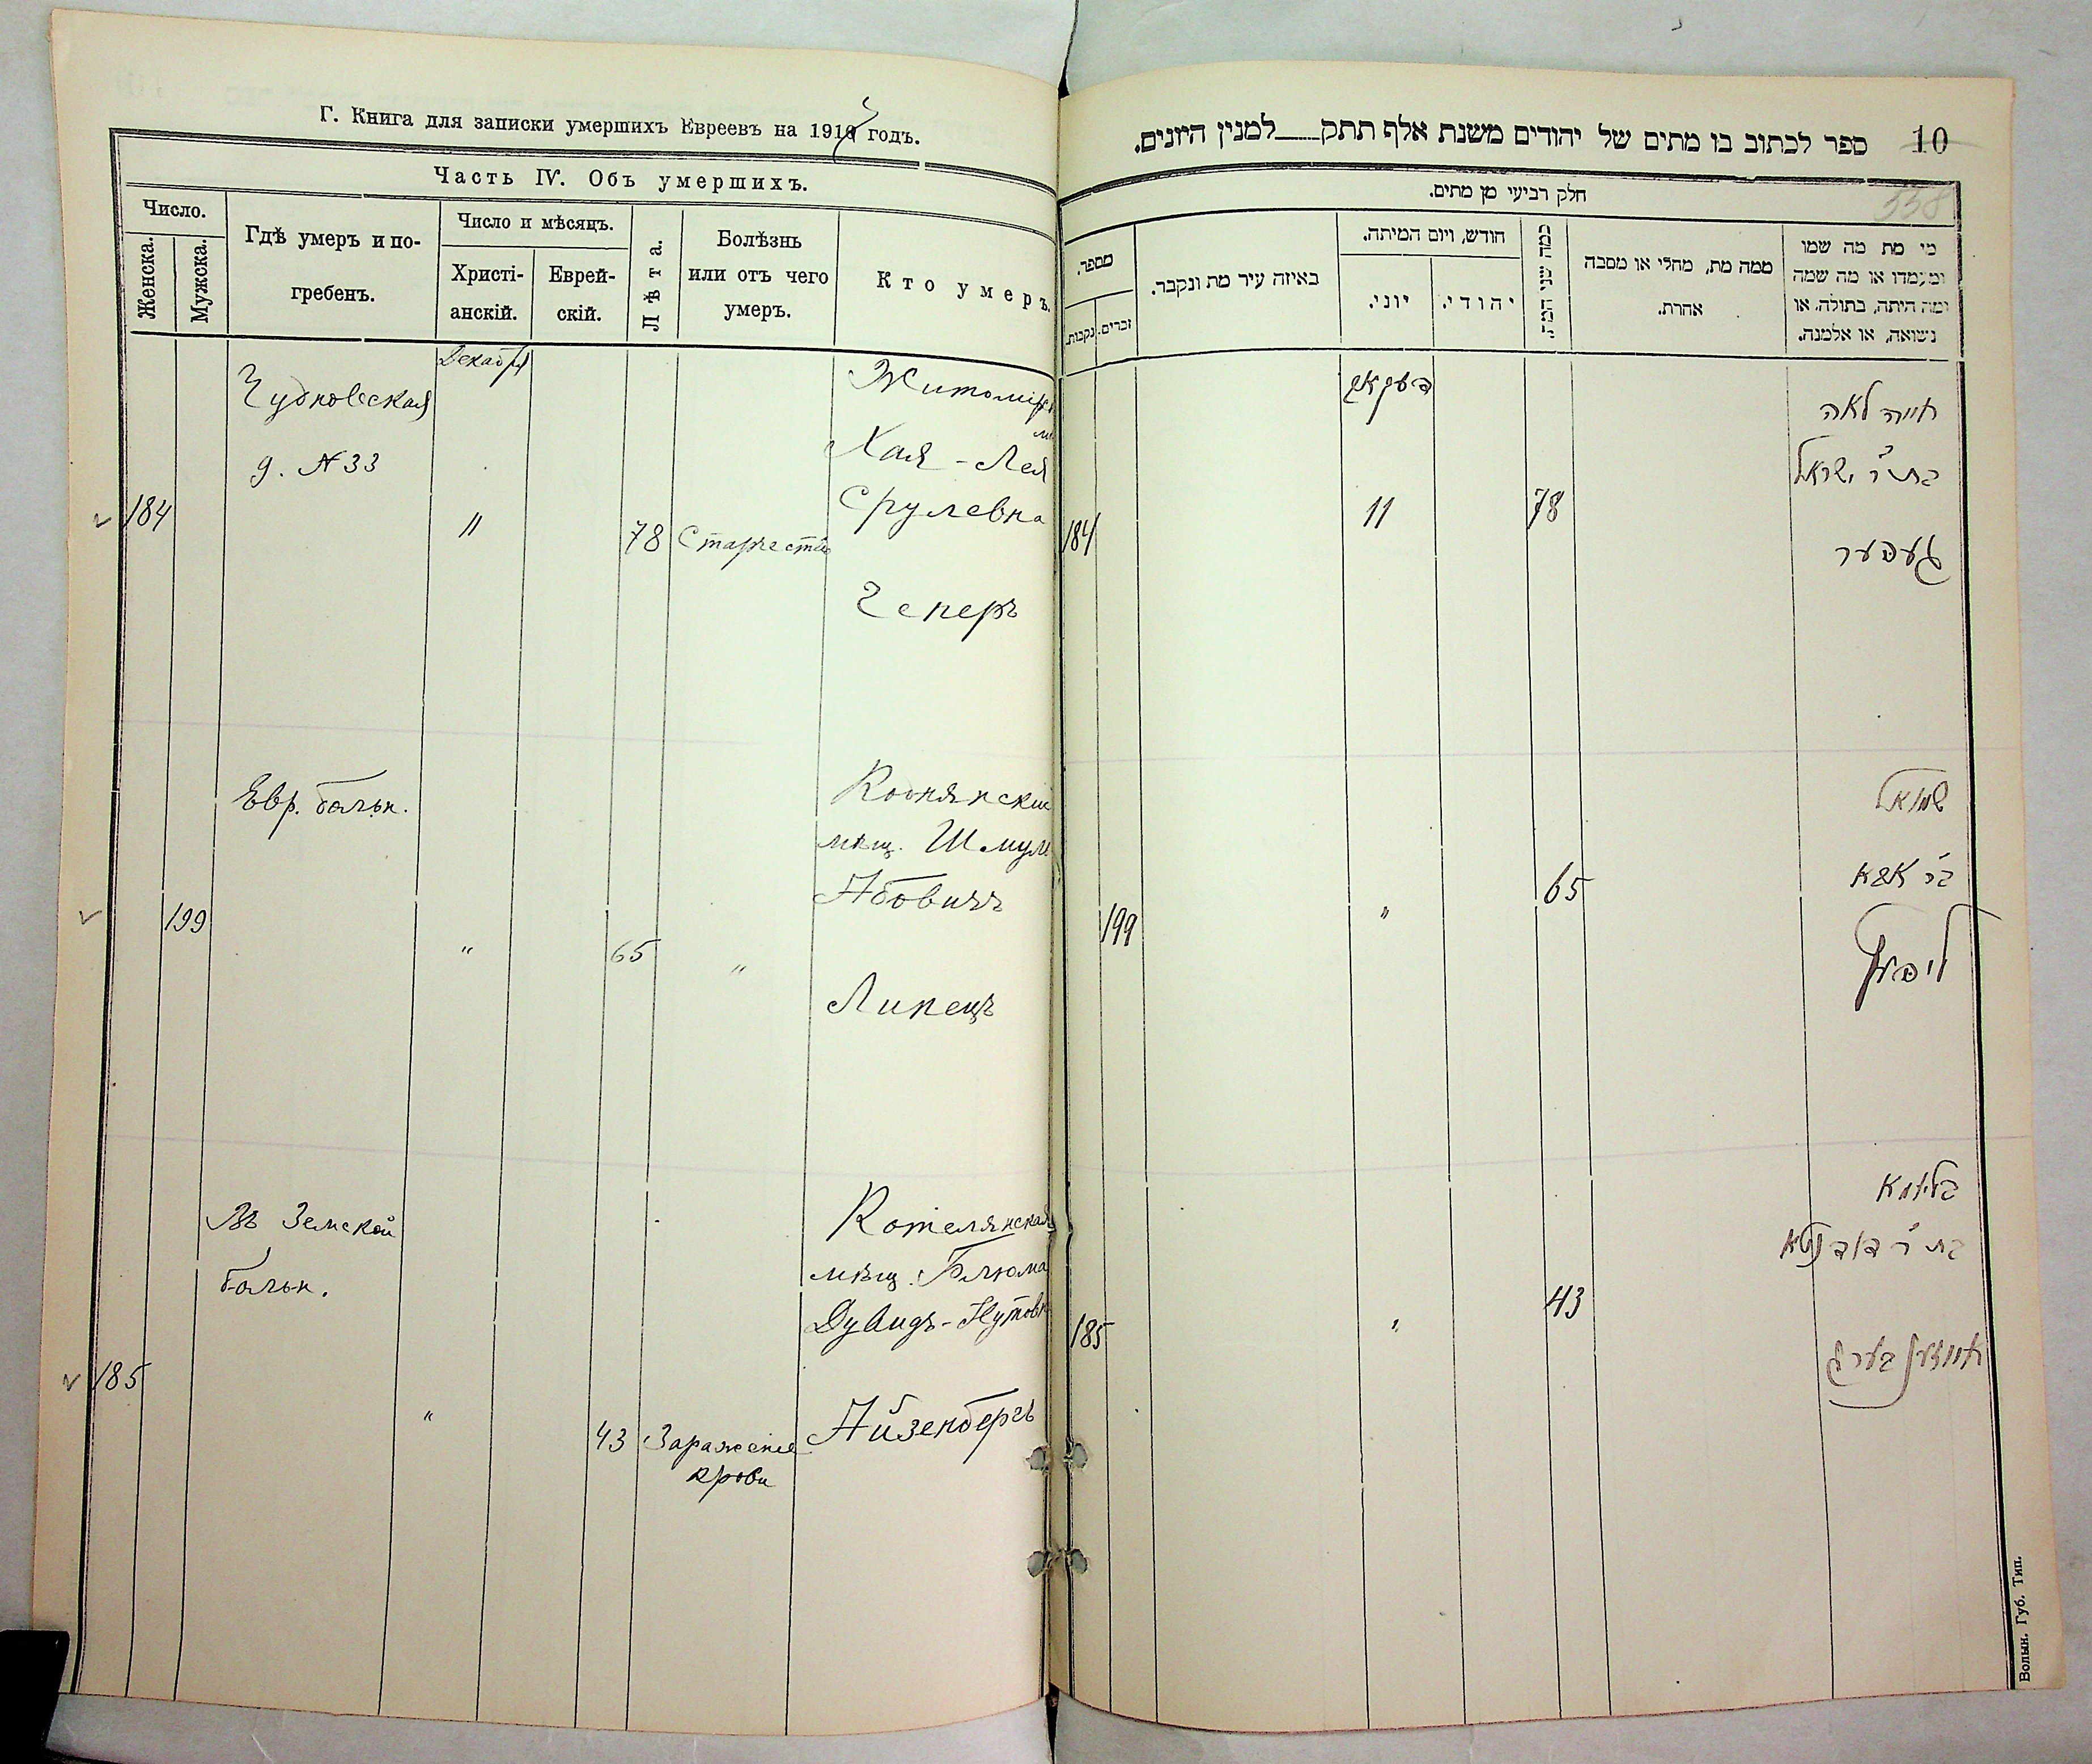 Г. Книга для записки умершихъ Евреевъ на 1917 годъ.
Часть IV. Объ умершихъ.
Число.
Женска.
Мужска.
Гдѣ умеръ и по-
гребенъ.
Число и мѣсяцъ.
Христі-
анскій.
Еврей-
скій.
Лѣта.
Болѣзнь
или отъ чего
умеръ.
Кто умеръ.
Декабря
Чудновская
д. №33
184
11
78
Старчество
Житомірск
Хая-Лея
Срулевна
Чеперъ
Евр. больн.
199
"
65
"
мѣщ. Шмуль
Абовичъ
Липецъ
Въ Земской
больн.
185
"
43
Зараженіе
крови
Котелянская
мѣщ. Блюма
Дувидъ-Нутовн
Айзенбергъ
10
338
ספר לכתוב בו מתים של יהודים משנת אלף תתק___למנין היונים.
חלק רביעי מן מתים.
מספר.
נקבות.
זכרים.
באיזה עיר מת ונקבר.
חודש, ויום המיתה.
יוני.
יהודי.
כמה שני המת.
ממה מת, מחלי או מסבה
אחרת.
מי מת מה שמו
ומעמדו או מה שמה
ומה היתה, בתולה, או
נשואה, או אלמנה.
דעקאב
184
11
78
חיה לאה
בת ר' ישראל
געפער
199
"
65
שמואל
בר אבא
ליפעץ
185
"
43
בלומא
בת ר' דוד נוטא
אייזענבערג
Волын. Губ. Тип.